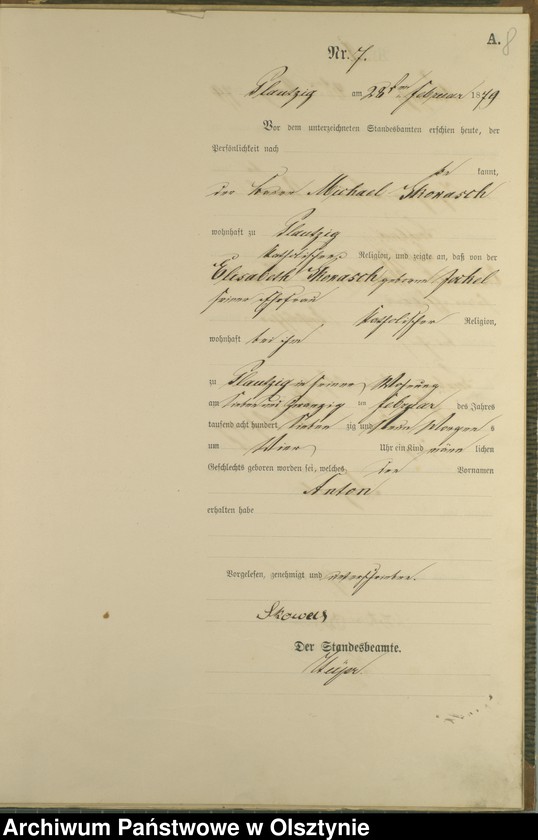 A.
8
Nr. 7.
Plautzig am 28ten Februar 1879
Vor dem unterzeichneten Standesbamten erschien heute, der
Persönlichkeit nach
kannt,
der Michael Skowasch
wohnhaft zu Plautzig
katholischer Religion, und zeigte an, daß von der
Elisabeth Skowasch geborene Jockel
seiner Ehefrau
katholischer Religion,
wohnhaft bei ihm
zu Plautzig in seiner Wohnung
am sieben und zwanzig ten Februar des Jahres
tausend acht hundert sieben zig und neun Morgen s
um vier Uhr ein Kind männ lichen
Geschlechts geboren worden sei, welches den Vornamen
Anton
erhalten habe
Vorgelesen, genehmigt und unterschrieben.
Der Standesbeamte.
Archiwum Państwowe w Olsztynie